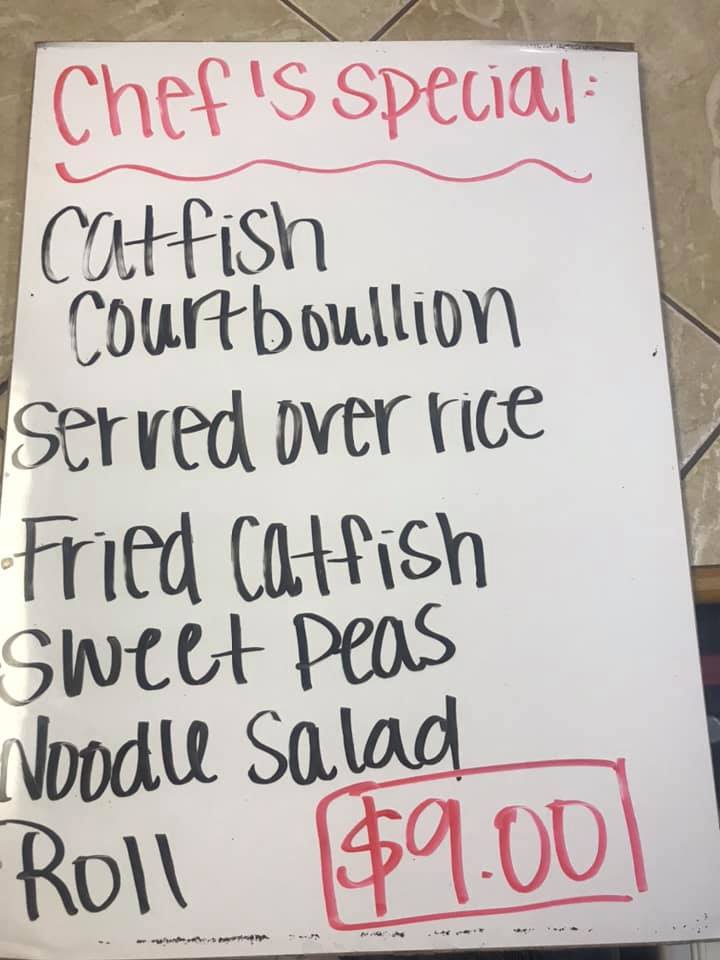 Chef's special:
Catfish
Courtboullion
Served over rice
Fried Catfish
Sweet Peas
Noodle Salad
Roll
$9.00